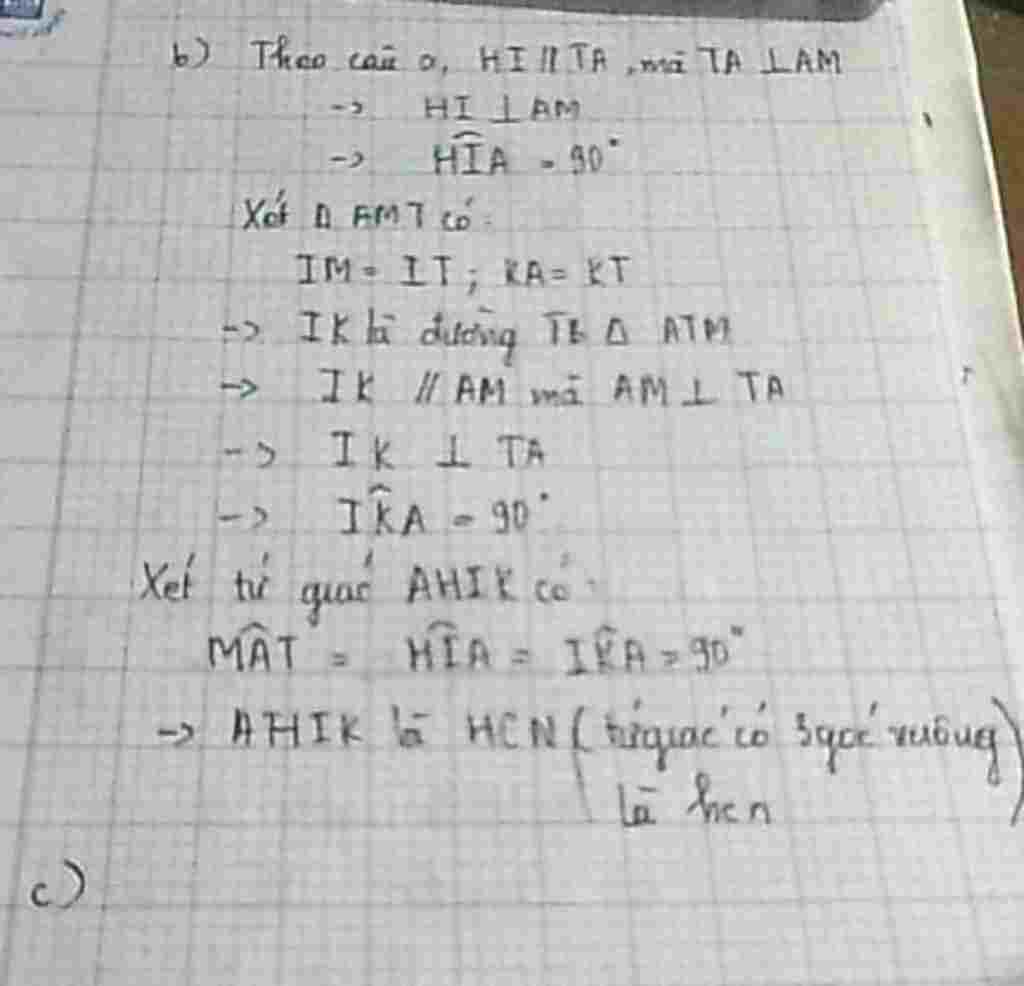 b) Theo câu a, HI // TA , mà TA ⊥ AM
-> HI ⊥ AM
-> HÎA = 90°
Xét Δ AMT có:
IM = IT ; KA = KT
-> IK là đường TB Δ ATM
-> IK // AM mà AM ⊥ TA
-> IK ⊥ TA
-> IK̂A = 90°
Xét tứ giác AHIK có:
MÂT = HÎA = IK̂A = 90°
-> AHIK là HCN ( tứ giác có 3 góc vuông
là hcn )
c)